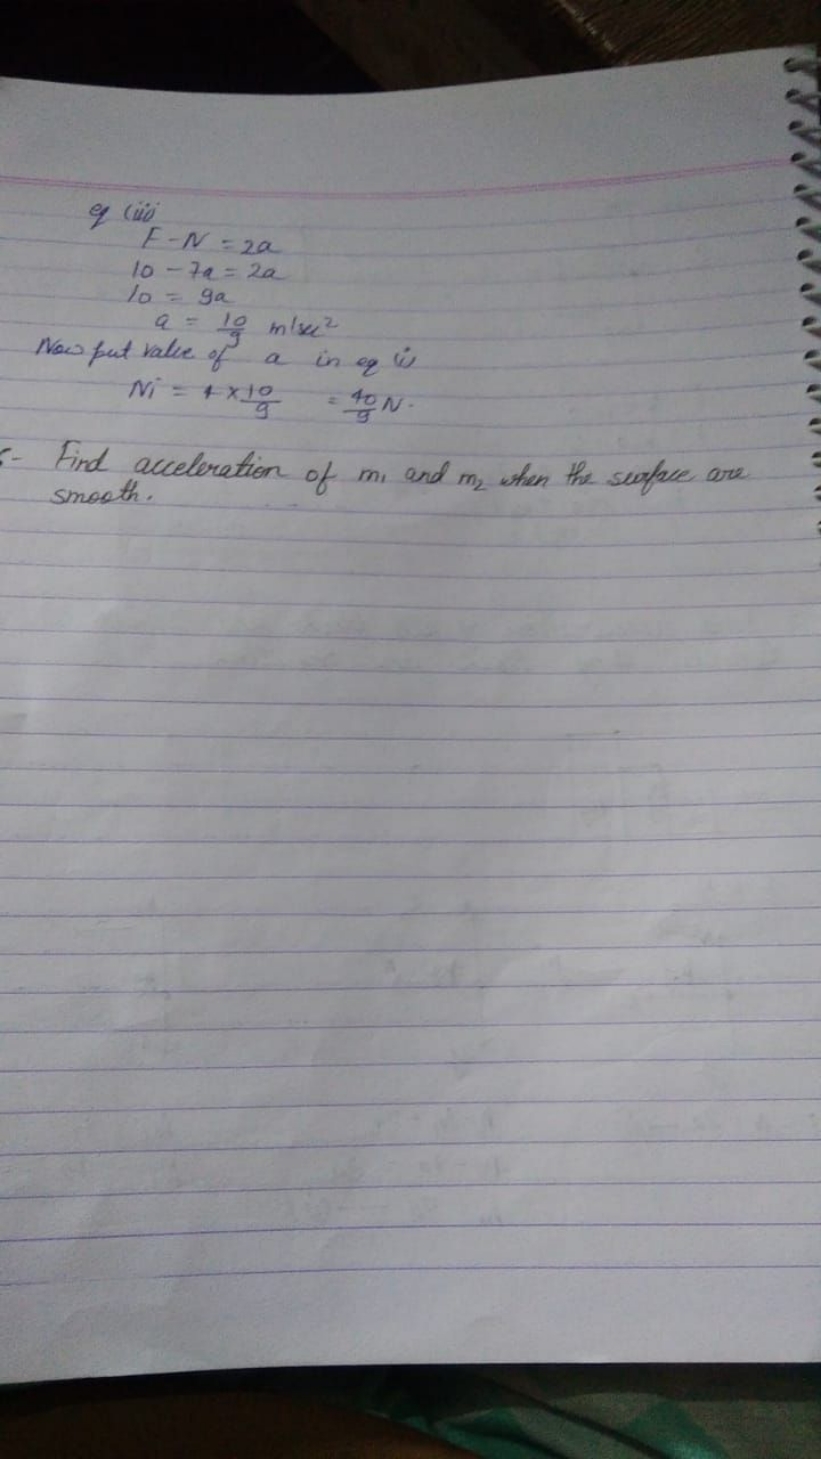 eq (iii)
F - N = 2a
10 - 7a = 2a
10 = 9a
a = 10/9 m/sec²
Now put value of a in eq (i)
Ni = 4 × 10/9 = 40/9 N.
Find acceleration of m₁ and m₂ when the surface are
smooth.